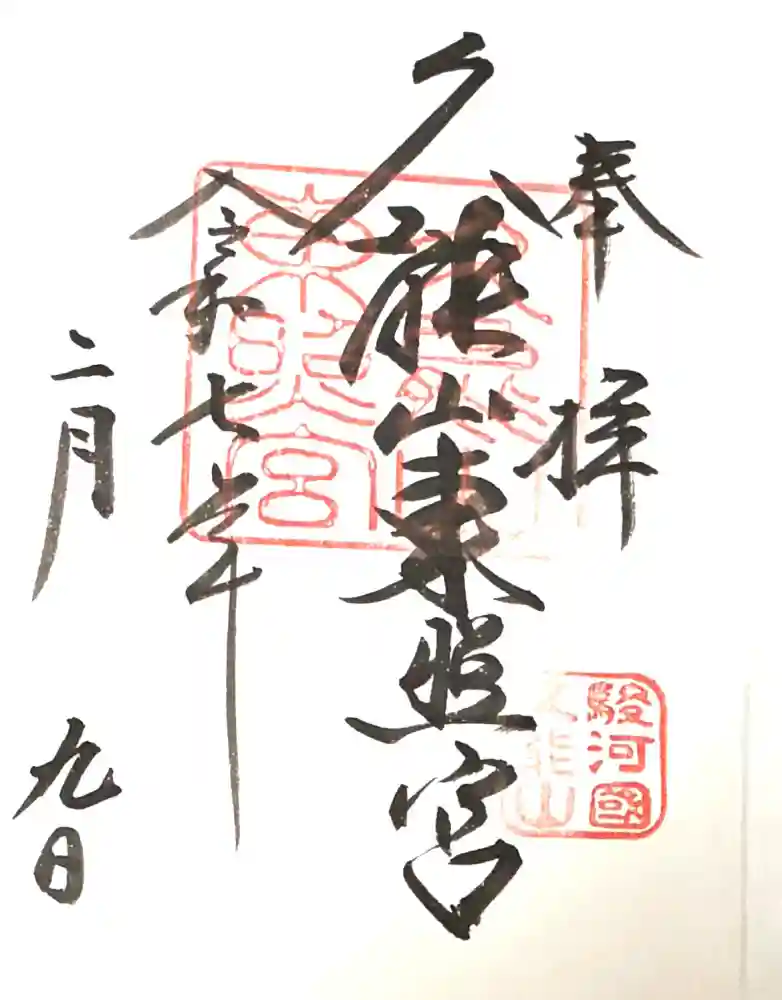 奉拝
久能山東照宮
令和七年
二月九日
駿河國
久能山
東照宮